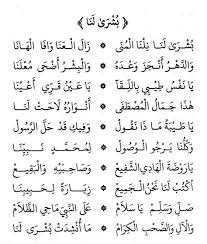 ﴿ بُشْرَىٰ لَنَا ﴾
بُشْرَىٰ لَنَا نِلْنَا الْمُنَىٰ * زَالَ الْعَنَا وَافَا الْهَنَا
وَالدَّهْرُ أَنْجَزَ وَعْدَهُ * وَالْبِشْرُ أَضْحَىٰ مُعْلَنَا
يَا نَفْسُ طِيْبِيْ بِاللِّقَآ * يَا عَيْنُ قَرِّيْ أَعْيُنَا
هٰذَا جَمَالُ الْمُصْطَفَىٰ * أَنْوَارُهُ لَاحَتْ لَنَا
يَا طَيْبَةُ مَا ذَا نَقُوْلُ * وَفِيْكِ قَدْ حَلَّ الرَّسُوْلُ
وَكُلُّنَا يَرْجُو الْوُصُوْلَ * لِمُحَمَّدٍ نَبِيِّنَا
يَا رَوْضَةَ الْهَادِي الشَّفِيْعِ * وَصَاحِبَيْهِ وَالْبَقِيْعِ
أُكْتُبْ لَنَا نَحْنُ الْجَمِيْعِ * زِيَارَةً لِحَبِيْبِنَا
صَلِّ وَسَلِّمْ يَا سَلَامْ * عَلَى النَّبِيْ مَاحِي الظَّلَامْ
وَالْآلِ وَالصَّحْبِ الْكِرَامْ * مَا أُنْشِدَتْ بُشْرَىٰ لَنَا